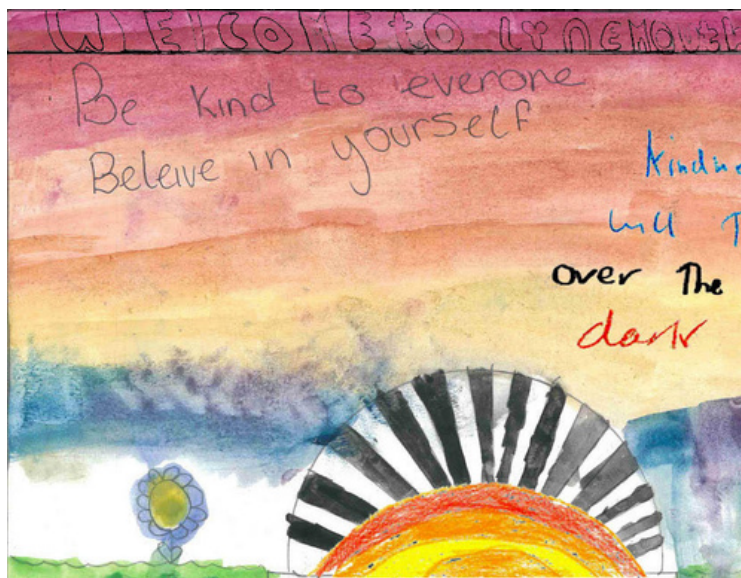 WElCOME to LYNEMOUTH
Be kind to everone
Beleive in yourself
kindne
will T
over The
dark